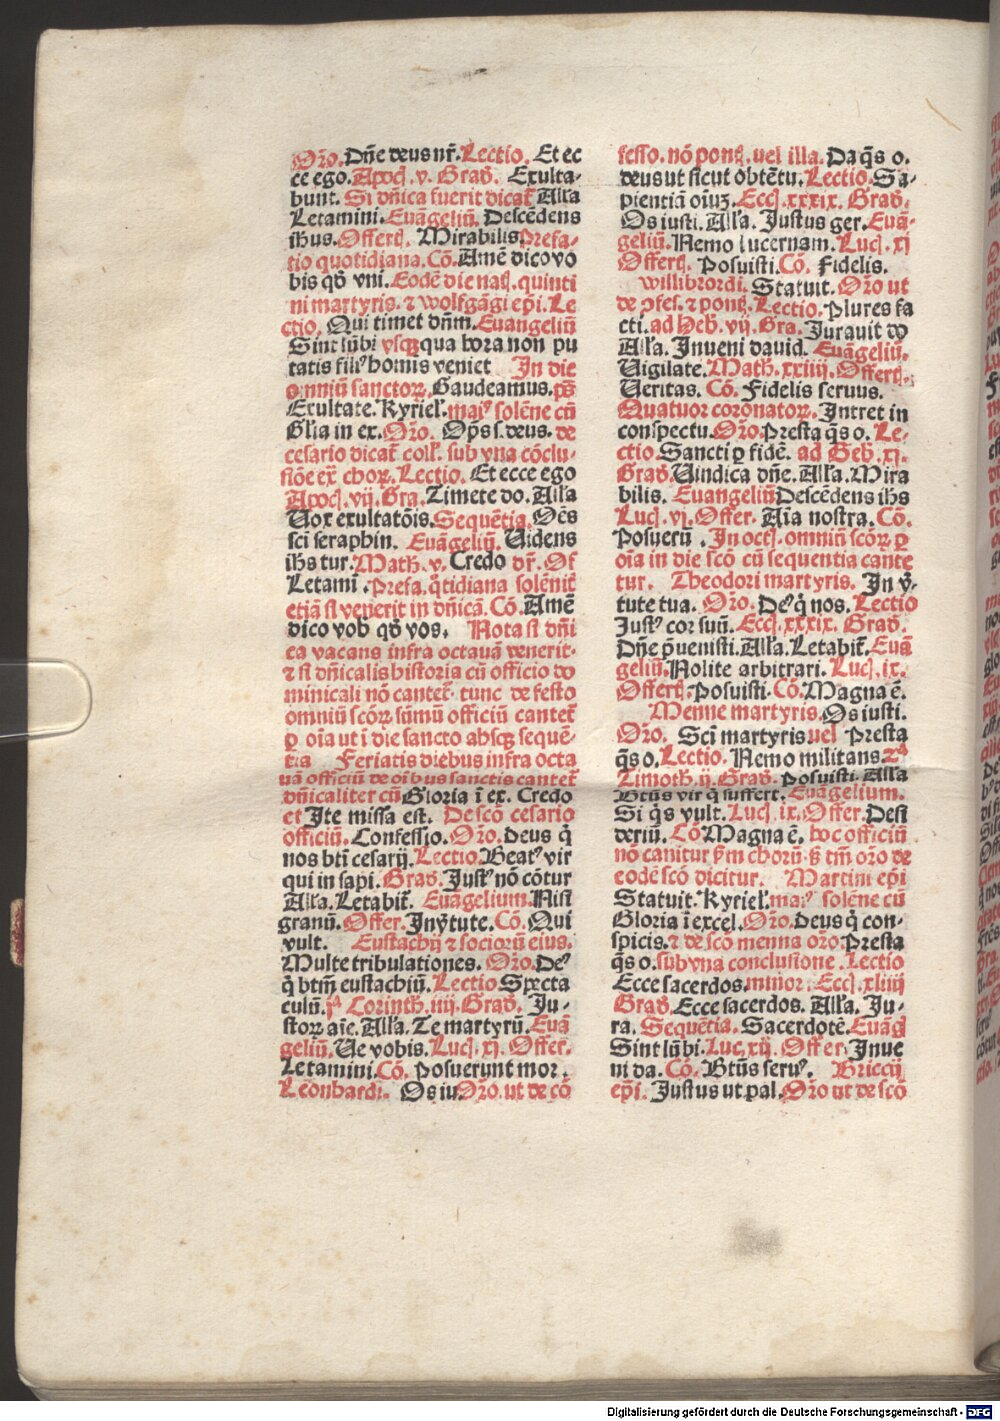 Oro. Dñe deus nr̃. Lectio. Et ec
ce ego. Apoc̃. v. Grad̃. Exulta-
bunt. Si dñica fuerit dicat̃ Alla
Letamini. Euãgeliũ. Descẽdens
ihus. Offert̃. Mirabilis Prefa-
tio quotidiana. Cõ. Amẽ dico vo
bis qđ vni. Eodẽ die naƚ. quinti
ni martyris. ⁊ wolfgãgi epi. Le
ctio. Qui timet dñm. Euangeliũ
Sint lũbi vsqꝫ qua hora non pu
tatis filiꝰ homis veniet In die
omniũ sanctoꝝ. Gaudeamus. p̃s
Exultate. Kyrieƚ. maiꝰ solẽne cũ
Gƚia in ex. Oro. Op̃s s. deus. de
cesario dicat̃ coƚƚ. sub vna cõclu-
siõe ex̃ choꝝ. Lectio. Et ecce ego
Apoc̃. vij. Gra. Timete do. Alla
Vox exultatõis. Sequẽtia. Oẽs
sci seraphin. Euãgeliũ. Videns
ihs tur. Math̃. v. Credo dr̃. Of
Letami. Prefa. q̃tidiana solẽnit̃
etiã si veñerit in dñicã. Cõ. Amẽ
dico vob qđ vos. Nota si dñi
ca vacans infra octauã venerit-
⁊ si dñicalis historia cũ officio do
minicali nõ cantet̃. tunc de festo
omniũ scõꝝ sũmũ officiũ cantet̃
ꝑ oĩa ut ĩ die sancto absqꝫ sequẽ-
tia Feriatis diebus infra octa
uã officiũ de oĩbus sanctis cantet̃
dñicaliter cũ Gloria ĩ ex. Credo
et Ite missa est. De scõ cesario
officiũ. Confessio. Oro. Deus q̃
nos bti cesarij. Lectio Beatꝰ vir
qui in sapi. Grad̃. Justꝰ nõ cõtur
Alla. Letabit̃. Euãgelium. Nisi
granũ. Offer. In v̾tute. Cõ. Qui
vult. Eustachij ⁊ sociorũ eius.
Multe tribulationes. Oro. Deꝰ
q̃ btm̃ eustachiũ. Lectio Specta
culũ. pᵃ Corinth. iiij. Grad̃. Ju-
stoꝝ aĩe. Alla. Te martyrũ. Euã
geliũ. Ve vobis. Luc̃. xj. Offer.
Letamini. Cõ. Posuerunt mor.
Leonhardi. Os iu. Oro. ut de cõ
fesso. nõ ponƚ. uel illa. Da q̃s o.
deus ut sicut obtẽtu. Lectio. Sa-
pientiã oiuꝫ. Ecc̃. xxxix. Grad̃.
Os iusti. Alla. Justus ger. Euã-
geliũ. Nemo lucernam. Luc̃. xj
Offert̃. Posuisti. Cõ. Fidelis.
willibrordi. Statuit. Oro ut
de ꝯfes. ⁊ ponƚ. Lectio. Plures fa
cti. ad Heb̃. vij. Gra. Jurauit do
Alla. Inueni dauid. Euãgeliũ.
Vigilate. Math̃. xxiiij. Offert̃.
Veritas. Cõ. Fidelis seruus.
Quatuor coronatoꝝ. Intret in
conspectu. Oro. Presta q̃s o. Le-
ctio Sancti ꝑ fidẽ. ad Heb̃. xj.
Grad̃. Vindica dñe. Alla. Mira
bilis. Euangeliũ Descẽdens ihs
Luc̃. vj. Offer. Aĩa nostra. Cõ.
Posuerũ. In octƚ. omniũ scõꝝ ꝑ
oĩa in die scõ cũ sequentia cante
tur. Theodori martyris. In v̾-
tute tua. Oro. Deꝰ q̃ nos. Lectio
Justꝰ cor suũ. Ecc̃. xxxix. Grad̃.
Dñe p̃uenisti. Alla. Letabit̃. Euã
geliũ. Nolite arbitrari. Luc̃. ix.
Offert̃. Posuisti. Cõ. Magna ẽ.
Menne martyris. Os iusti.
Oro. Sci martyris uel Presta
q̃s o. Lectio. Nemo militans 2ᵃ
Timoth̃. ij. Grad̃. Posuisti. Alla
Btũs vir q̃ suffert. Euãgelium.
Si q̃s vult. Luc̃. ix. Offer. Desi
deriũ. Cõ Magna ẽ. hoc officiũ
nõ canitur p̃m chorũ. s̃ tm̃ oro de
eodẽ scõ dicitur. Martini epi
Statuit. Kyrieƚ. maiꝰ solẽne cũ
Gloria ĩ excel. Oro. Deus q̃ con-
spicis. ⁊ de scõ menna oro Presta
q̃s o. sub vna conclusione. Lectio
Ecce sacerdos. minor. Ecc̃. xliiij
Grad̃. Ecce sacerdos. Alla. Ju-
ra. Sequẽtia. Sacerdotẽ. Euãg̃
Sint lũbi. Luc. xij. Offer. Inue
ni da. Cõ. Btũs seruꝰ. Briccij
epi. Justus ut pal. Oro ut de scõ
Digitalisierung gefördert durch die Deutsche Forschungsgemeinschaft - DFG